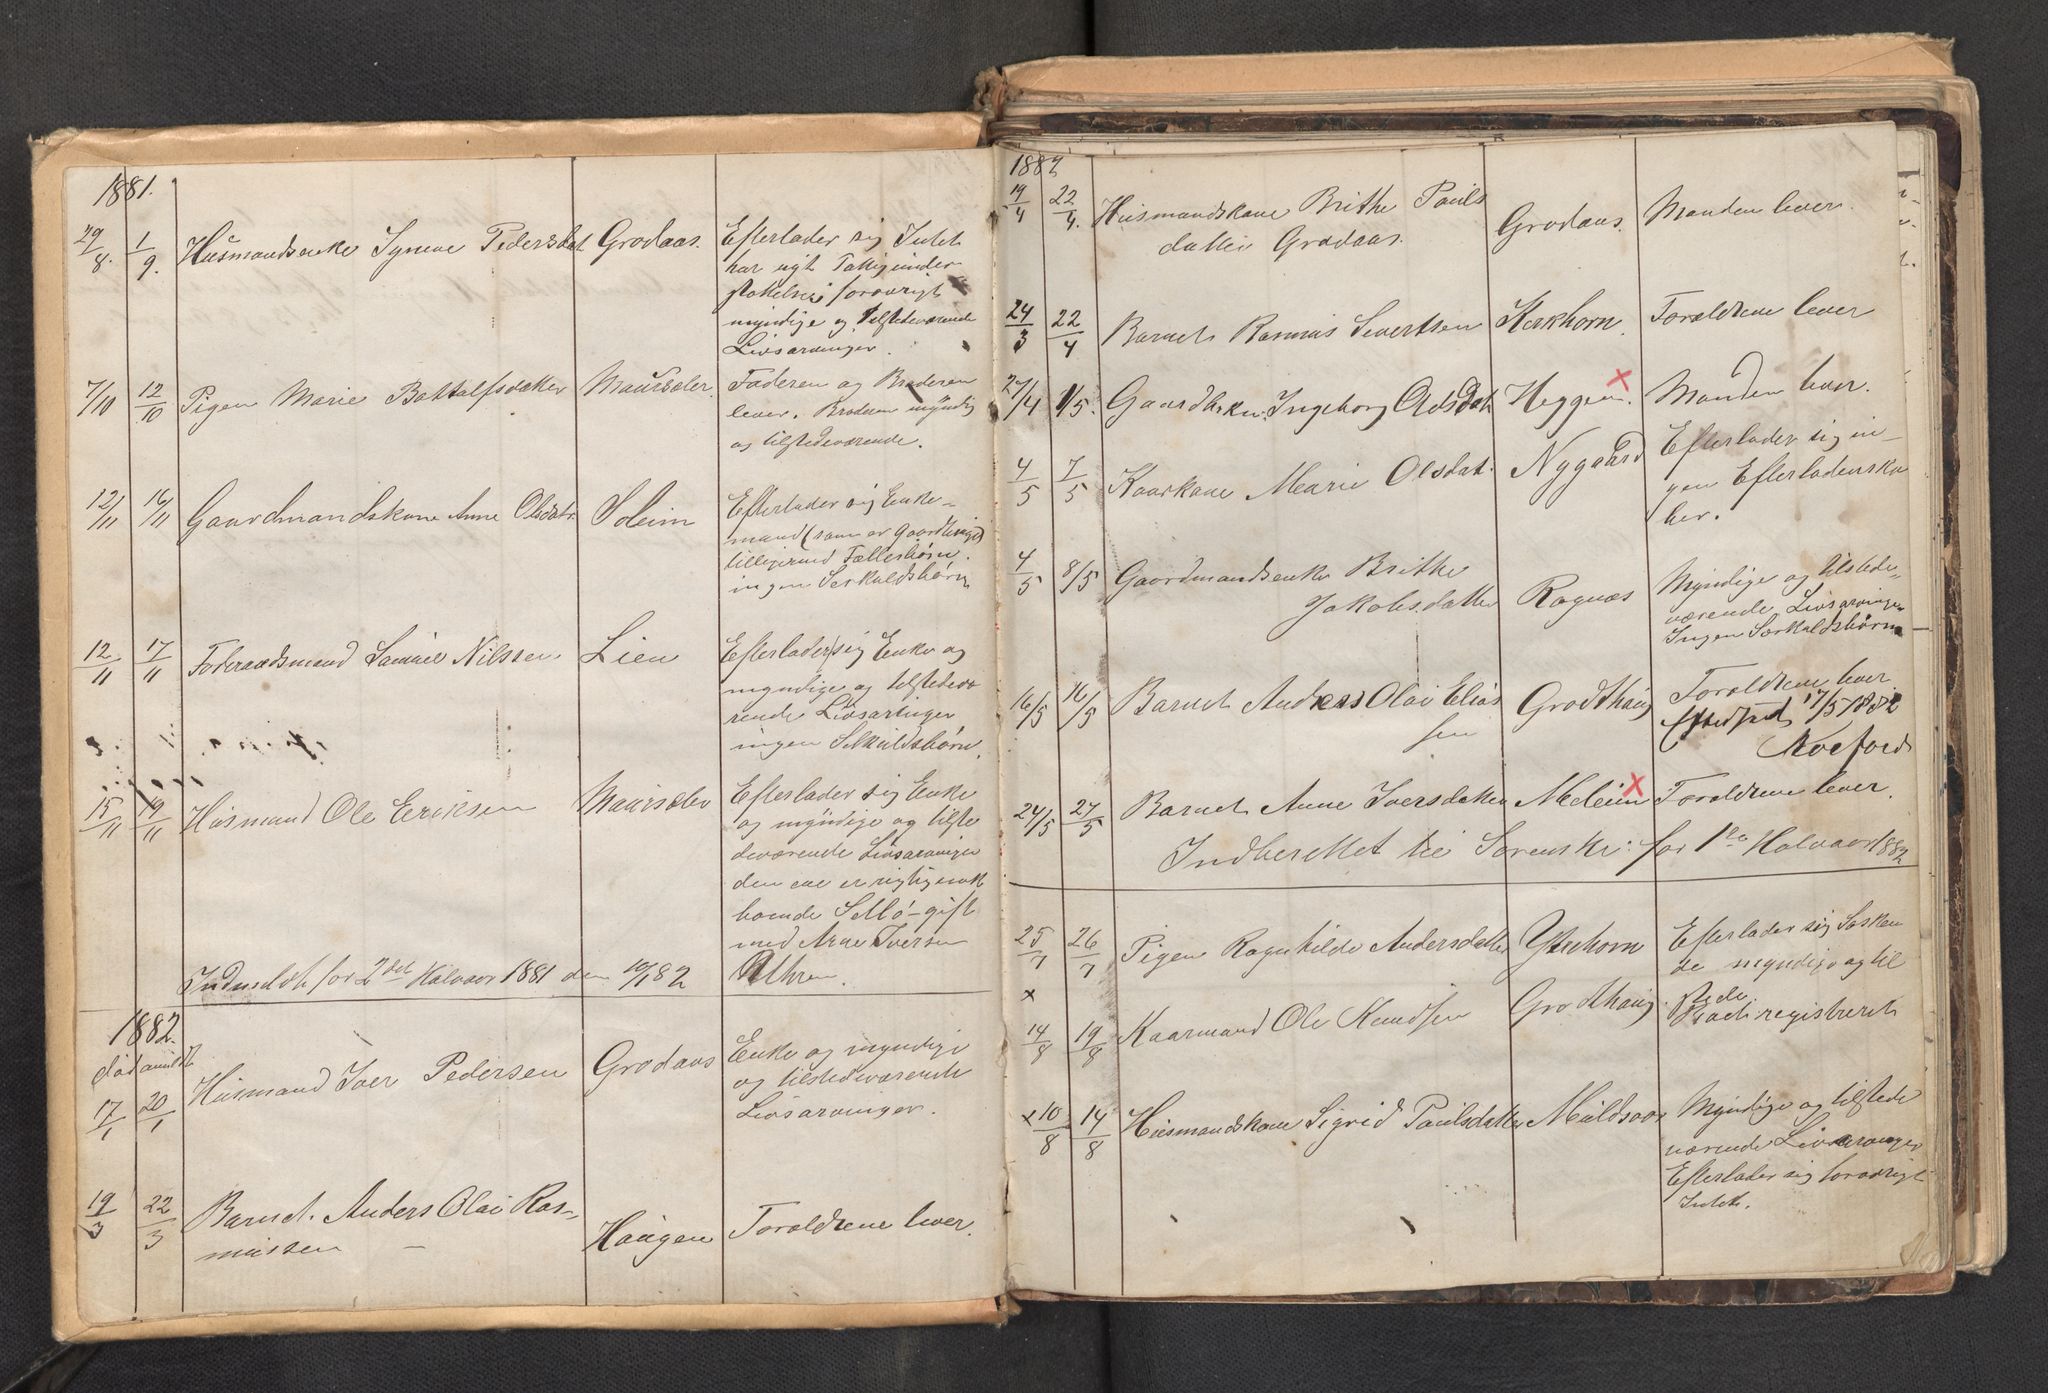 1881.
29/8. 1/9. Husmandsenke Syneve Pedersdat Grodaas. Efterlader sig Intet
har nyt Fattigunder
støttelse; forøvrigt
myndige og tilstedeværende
Livsarvinger.
7/10 12/10 Pigen Marie Battalfsdatter Maursæter. Faderen og Broderen
lever. Broderen myndig
og tilstedeværende.
12/11 16/11 Gaardmandskone Anne Olsdatr. Soleim Efterlader sig Enke-
mand (som er Gaardbruger)
tilligemed Fællesbørn.
ingen Serkuldsbørn
12/11 17/11 Føderaadsmand Samuel Nilssen Lien Efterlader sig Enke og
myndige og tilstedevæ
rende Livsarvinger
ingen Serkuldsbørn.
15/11 19/11 Husmand Ole Eriksen Maursæter Efterlader sig Enke
og myndige og tilste
deværende Livsarvinger
den ene er
boende gift
med Arne Iversen
Indmeldt for 2det Halvaar 1881 den 10/1 82
1882.
død anmeldt
17/1 20/1 Husmand Iver Pedersen Grodaas Enke og myndige
og tilstedeværende
Livsarvinger.
19/3 22/3 Barnet Anders Olai Ras-
mussen Haugen Foraldrene lever.
1882
19/4 22/4. Husmandskone Brithe Pauls
datter Grodaas. Grodaas. Manden lever.
24/3 22/4 Barnet Rasmus Sivertsen Kirkhorn. Foraldrene lever
27/4 1/5. Gaardbrkn: Ingeborg Olsdat. Heggen. Manden lever.
4/5 7/5 Kaarkone Marie Olsdat. Nygaard Efterlader sig in-
gen Efterladenska
ber.
4/5 8/5 Gaardmandsenke Brithe
Jakobsdatter Rognæs Myndige og tilstede-
værende Livsarvinger
Ingen Særkuldsbørn
16/5 16/5 Barnet Anders Olai Elias
sen Grodthaug Foraldrene lever
17/5 1882
Koefoed
24/5 27/5 Barnet Anne Iversdatter Meleim Foraldrene lever.
Indberettet til Sorenskr: for 1ste Halvaar 1882
25/7 26/7 Pigen Ragnhilde Andersdatter Ytrehorn Efterlader sig Sosken
de myndige og til
stede
x
14/8 19/8 Kaarmand Ole Knudsen Grodthaug Boet registreret
x 10/8 14/8 Husmandskone Sigrid Paulsdatter Muldsvor Myndige og tilstede
værende Livsarvinger
Efterlader sig forøvrigt
Intet.